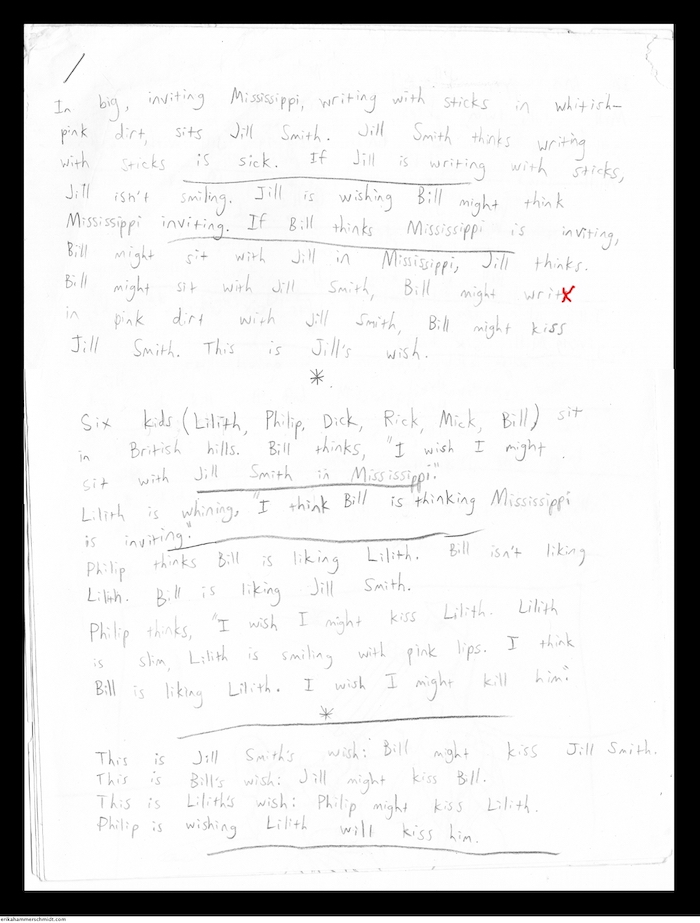 In big, inviting Mississippi, writing with sticks in whitish-
pink dirt, sits Jill Smith. Jill Smith thinks writing
with sticks is sick. If Jill is writing with sticks,
Jill isn't smiling. Jill is wishing Bill might think
Mississippi inviting. If Bill thinks Mississippi is inviting,
Bill might sit with Jill in Mississippi, Jill thinks.
Bill might sit with Jill Smith, Bill might writ
in pink dirt with Jill Smith, Bill might kiss
Jill Smith. This is Jill's wish.
*
Six kids (Lilith, Philip, Dick, Rick, Mick, Bill) sit
in British hills. Bill thinks, "I wish I might
sit with Jill Smith in Mississippi."
Lilith is whining, "I think Bill is thinking Mississippi
is inviting."
Philip thinks Bill is liking Lilith. Bill isn't liking
Lilith. Bill is liking Jill Smith.
Philip thinks, "I wish I might kiss Lilith. Lilith
is slim, Lilith is smiling with pink lips. I think
Bill is liking Lilith. I wish I might kill him."
*
This is Jill Smith's wish: Bill might kiss Jill Smith.
This is Bill's wish: Jill might kiss Bill.
This is Lilith's wish: Philip might kiss Lilith.
Philip is wishing Lilith will kiss him.
erikahammerschmidt.com